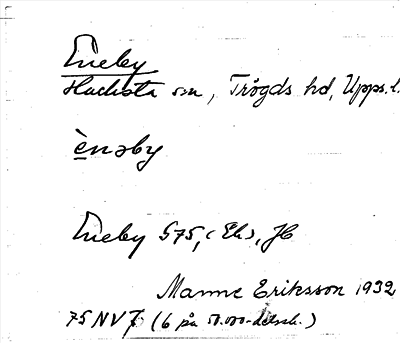 Eneby
Hacksta sn, Trögds hd, Upps. l.
è̱nəby
Eneby 575, (Ek), JC
Manne Eriksson 1932
75 NV 7 (6 på 50.000-delssk.)